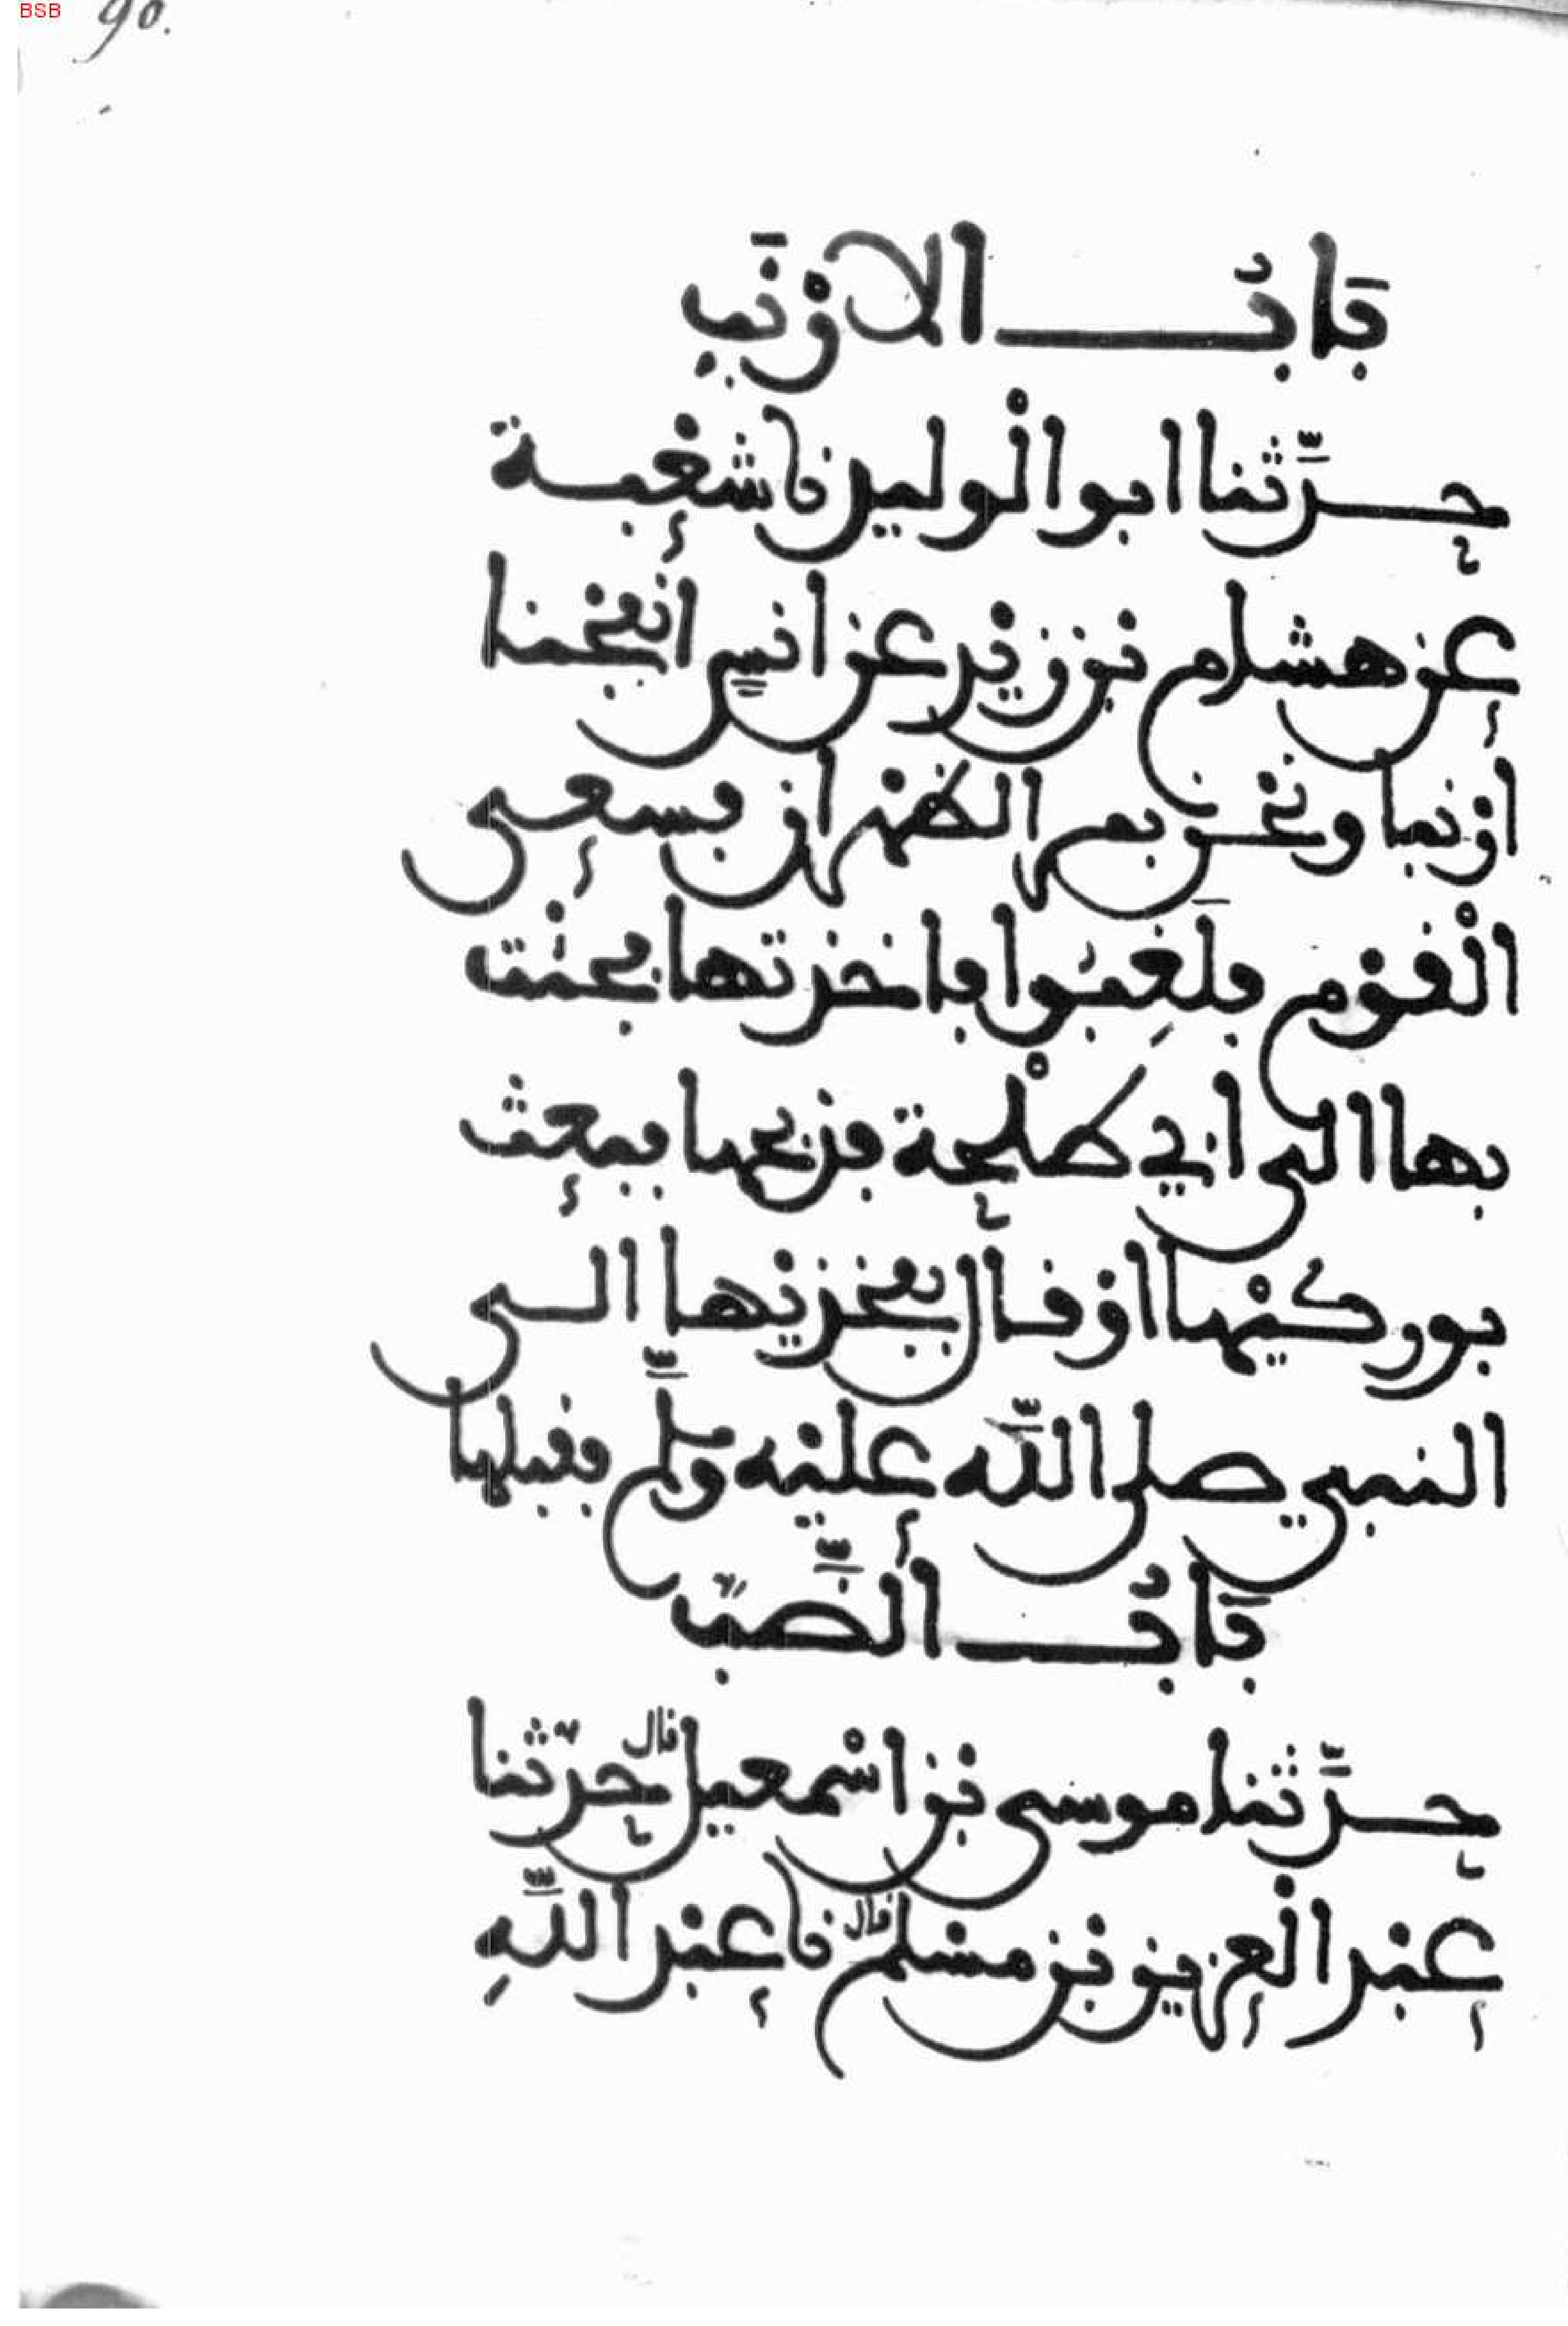 BSB 90.
بَابُ الارْنَب
حدَّثنا ابوا لْوليد نا شعْبة
عن هشام بن زيْد عن انس انفجنا
ارْنبا ونحْن بمر الظهْران فسعى
الْقوْم فلَغِبُوا فاخذتها فجئْت
بها الى ابي طلْحة فذبحها فبعث
بوركيْها اوْ قال بفخذيْها الى
النبي صلى اللّه عليْه وسلّم فقبلها
بَابُ الضَّبّ
حدَّثنا موسى بْن اسْمعيل قال حدّثنا
عبْد الْعزيز بْن مسْلم قال نا عبْد اللَّهِ